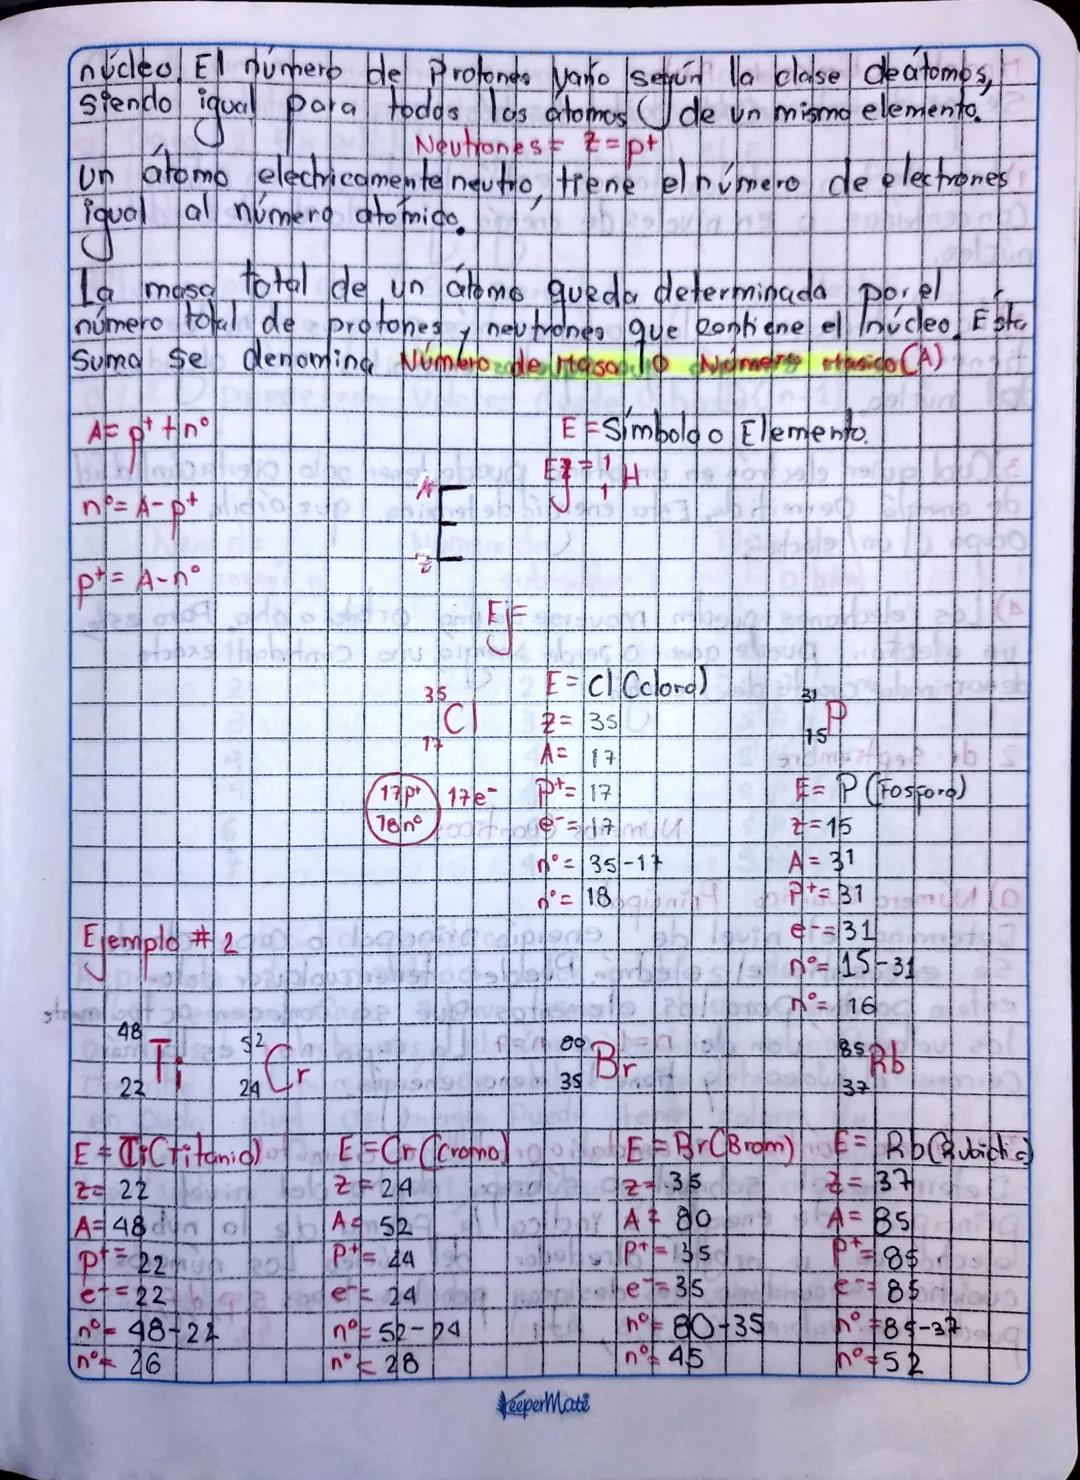 núcleo. El número de Protones vario según la clase de átomos,
siendo igual para todos los átomos de un mismo elemento.
Neutrones = z = p+
Un átomo electricamente neutro, tiene el número de electrones
igual al número atómico.
La masa total de un átomo queda determinada por el
número total de protones y neutrones que contiene el núcleo. Esta
suma se denomina Número de Masa o Número Masico (A)
A= p+ + n° E = Símbolo o Elemento.
Ej = 1 H 1
n° = A - p+ A E z
p+ = A - n°
Ej=
35 Cl 17 E = Cl (cloro) 31 P 15
z = 35
A = 17
17p+ 17e- p+ = 17 E = P (Fosforo)
18n° e- = 17 z = 15
n° = 35-17 A = 31
n° = 18 P+ = 31
Ejemplo # 2 e- = 31
n° = 15-31
n° = 16
48 Ti 22 52 Cr 24 80 Br 35 85 Rb 37
E = Ti (Titanio) E = Cr (cromo) E = Br (Brom) E = Rb (Rubidio)
z = 22 z = 24 z = 35 z = 37
A = 48 A = 52 A = 80 A = 85
p+ = 22 P+ = 24 P+ = 35 P+ = 85
e- = 22 e- = 24 e- = 35 e- = 85
n° = 48-22 n° = 52-24 n° = 80-35 n° = 85-37
n° = 26 n° = 28 n° = 45 n° = 52
KeeperMate